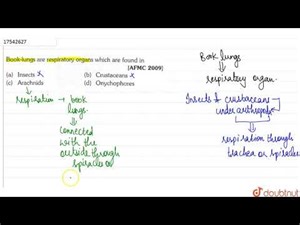 17542627
Book-lungs are respiratory organs which are found in
[AFMC 2009]
(a) Insects x
(b) Crustaceana x
(c) Arachnids
(d) Onychophores
respiration → book
lungs.
connected
with the
outside through
spiracles or
Book lungs
respiratory organ.
Insects & crustaceans
under arthropoda
respiration through
trachea or spiracles
doubtnut